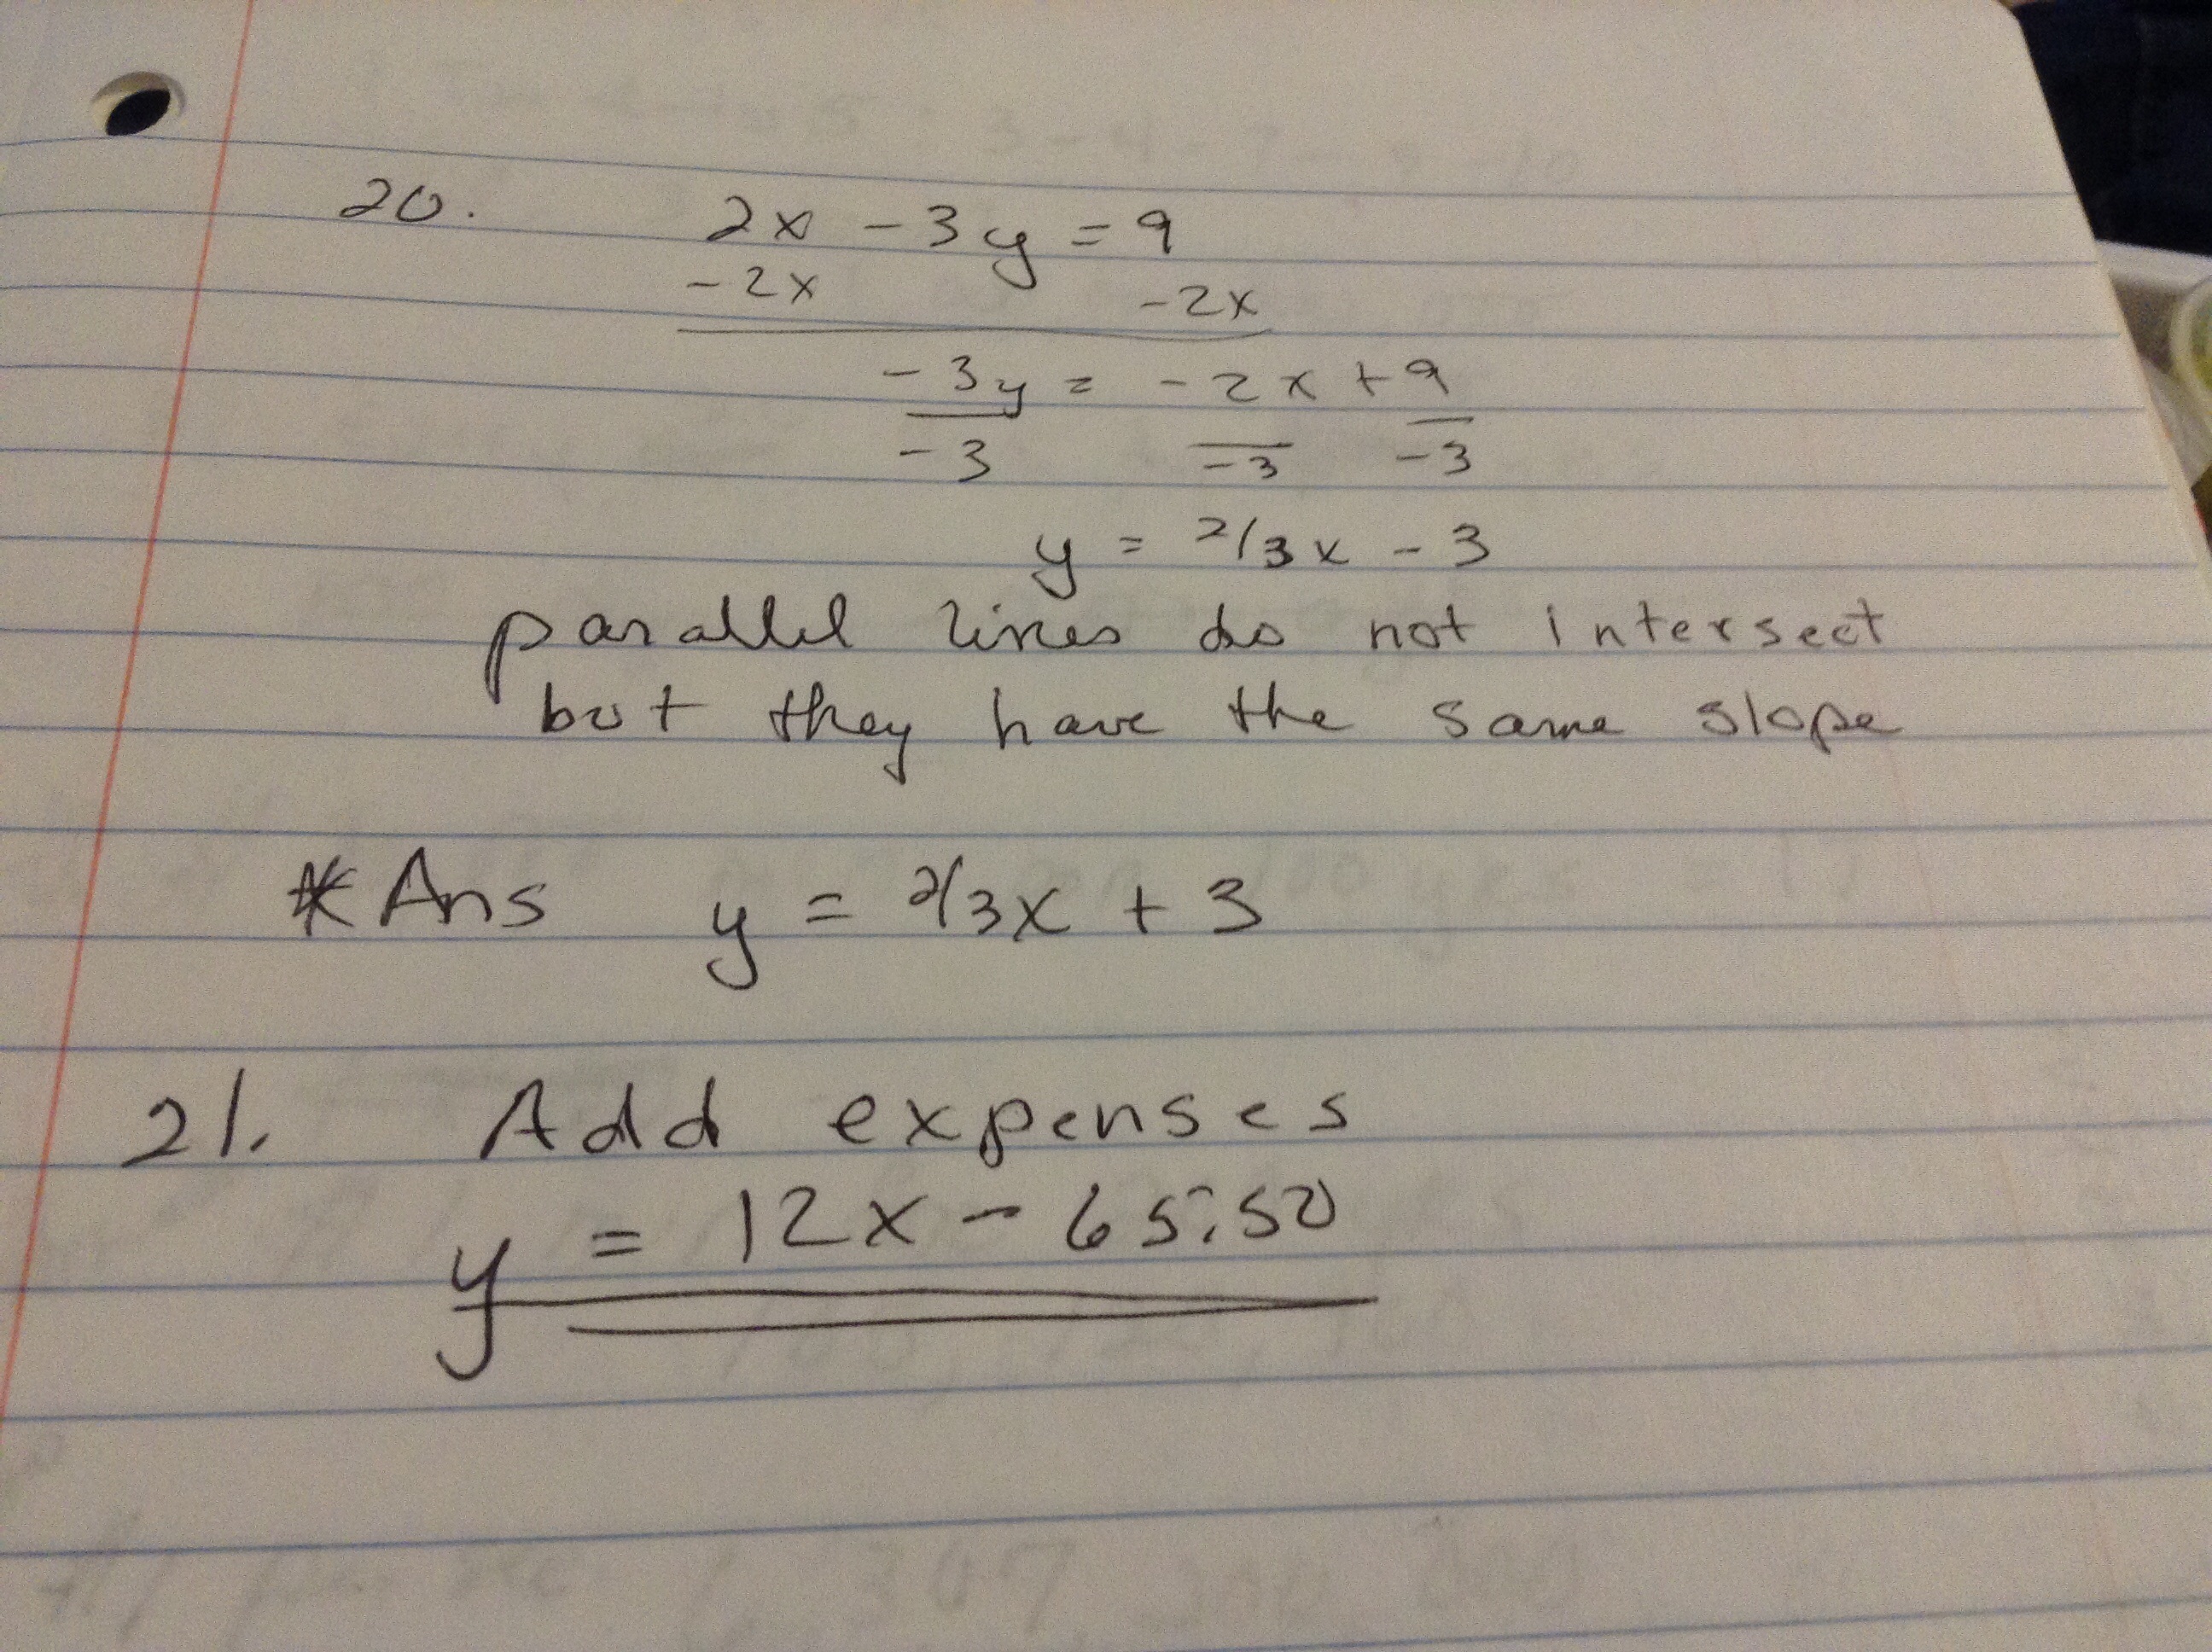 20. 2x - 3y = 9
-2x -2x
-3y = -2x + 9
-3 -3 -3
y = 2/3x - 3
parallel lines do not intersect
but they have the same slope
*Ans y = 2/3x + 3
21. Add expenses
y = 12x - 65.50